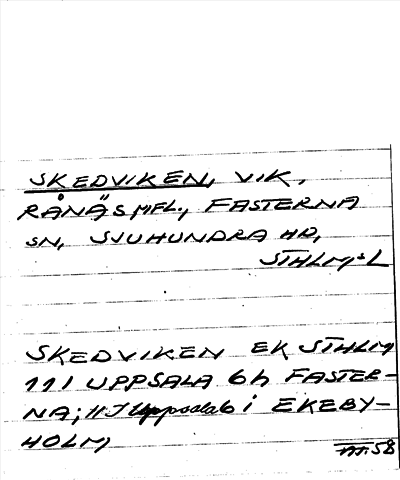 SKEDVIKEN, VIK,
RÅNÄS MFL., FASTERNA
SN, SJUHUNDRA HD,
STHLMS L
SKEDVIKEN EK STHLM
111 UPPSALA 6h FASTER-
NA; 11 J Uppsala 6 i EKEBY-
HOLM
58